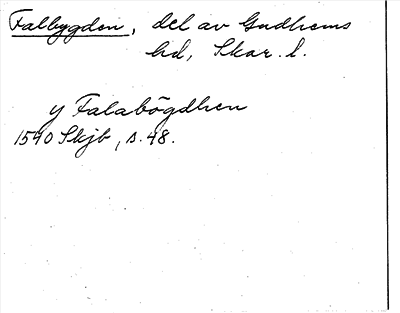 Falbygden, del av Gudhems
hd, Skar. l.
y Falabögdhen
1540 Skjb, s. 48.